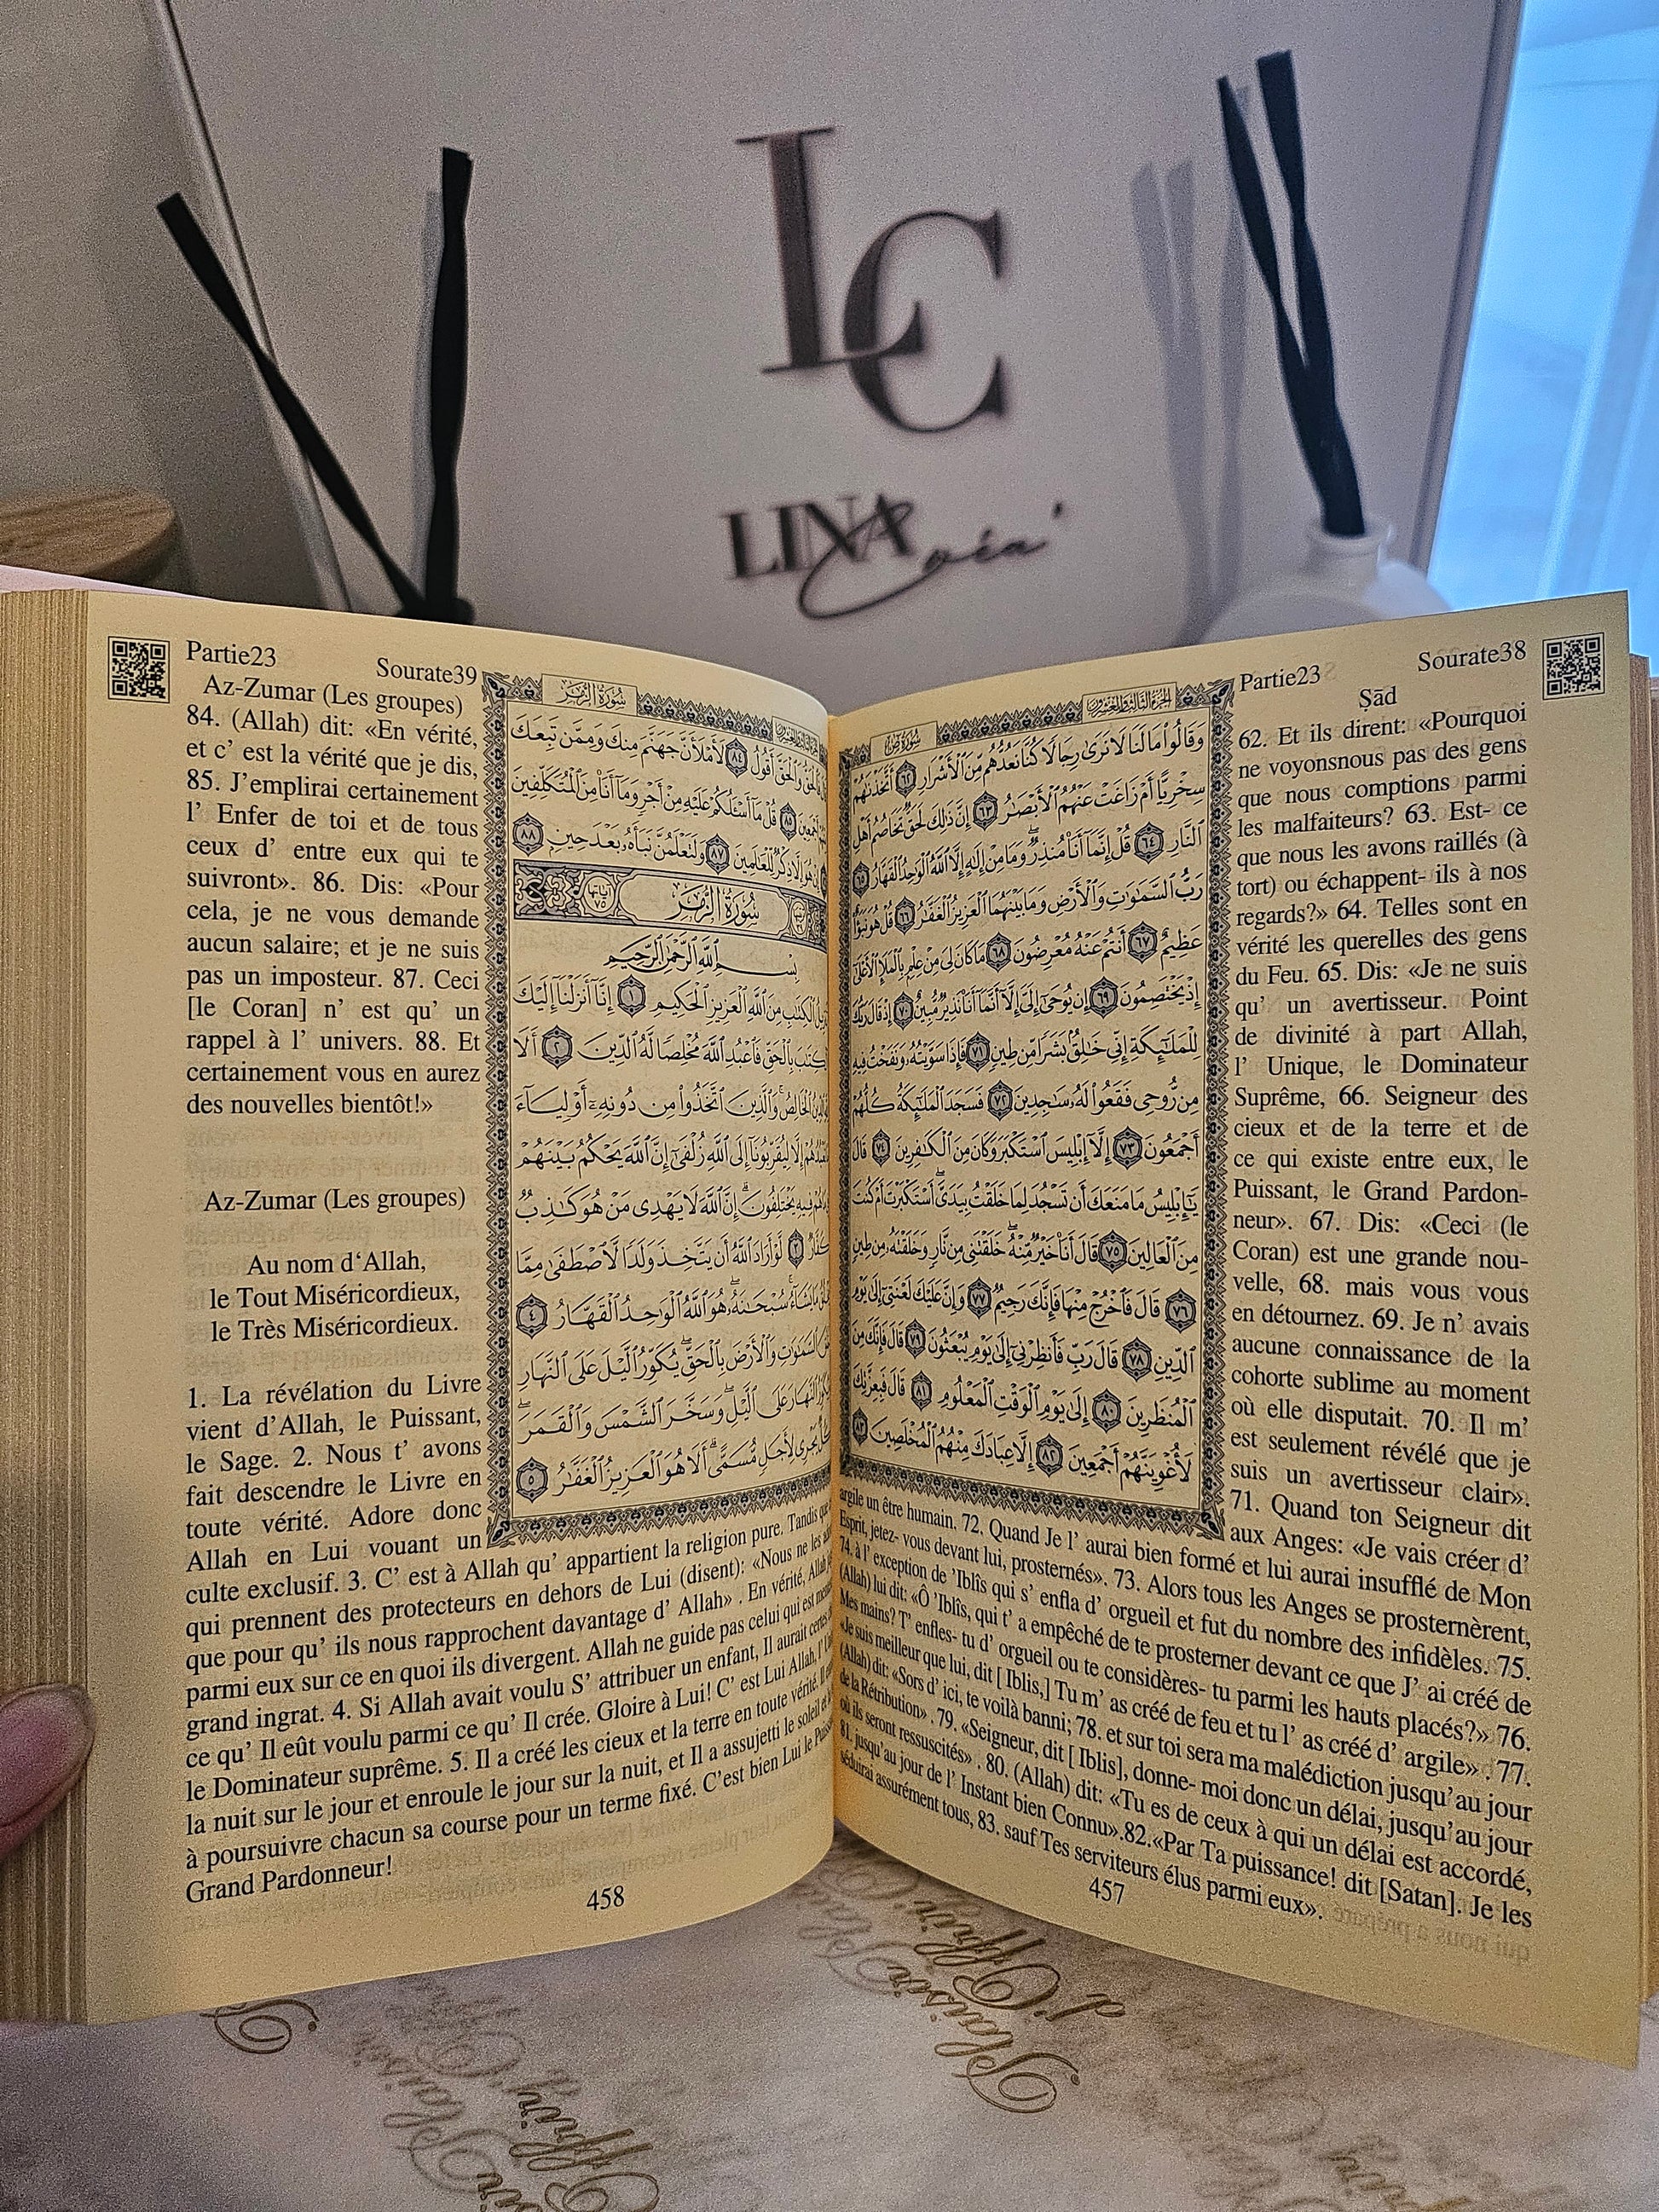 LC
LINA
Coéa'
Partie23
Sourate38
Ṣād
سُورَةُ صٓ
الجُزْءُ الثَّالِثُ وَالعِشْرُونَ
وَقَالُوا۟ مَا لَنَا لَا نَرَىٰ رِجَالًا كُنَّا نَعُدُّهُم مِّنَ ٱلْأَشْرَارِ ٦٢ أَتَّخَذْنَٰهُمْ
سِخْرِيًّا أَمْ زَاغَتْ عَنْهُمُ ٱلْأَبْصَٰرُ ٦٣ إِنَّ ذَٰلِكَ لَحَقٌّ تَخَاصُمُ أَهْلِ
ٱلنَّارِ ٦٤ قُلْ إِنَّمَآ أَنَا۠ مُنذِرٌ ۖ وَمَا مِنْ إِلَٰهٍ إِلَّا ٱللَّهُ ٱلْوَٰحِدُ ٱلْقَهَّارُ ٦٥
رَبُّ ٱلسَّمَٰوَٰتِ وَٱلْأَرْضِ وَمَا بَيْنَهُمَا ٱلْعَزِيزُ ٱلْغَفَّٰرُ ٦٦ قُلْ هُوَ نَبَؤٌا۟
عَظِيمٌ ٦٧ أَنتُمْ عَنْهُ مُعْرِضُونَ ٦٨ مَا كَانَ لِىَ مِنْ عِلْمٍۭ بِٱلْمَلَإِ ٱلْأَعْلَىٰٓ
إِذْ يَخْتَصِمُونَ ٦٩ إِن يُوحَىٰٓ إِلَىَّ إِلَّآ أَنَّمَآ أَنَا۠ نَذِيرٌ مُّبِينٌ ٧٠ إِذْ قَالَ رَبُّكَ
لِلْمَلَٰٓئِكَةِ إِنِّى خَٰلِقٌۢ بَشَرًا مِّن طِينٍ ٧١ فَإِذَا سَوَّيْتُهُۥ وَنَفَخْتُ فِيهِ
مِن رُّوحِى فَقَعُوا۟ لَهُۥ سَٰجِدِينَ ٧٢ فَسَجَدَ ٱلْمَلَٰٓئِكَةُ كُلُّهُمْ
أَجْمَعُونَ ٧٣ إِلَّآ إِبْلِيسَ ٱسْتَكْبَرَ وَكَانَ مِنَ ٱلْكَٰفِرِينَ ٧٤ قَالَ
يَٰٓإِبْلِيسُ مَا مَنَعَكَ أَن تَسْجُدَ لِمَا خَلَقْتُ بِيَدَىَّ ۖ أَسْتَكْبَرْتَ أَمْ كُنتَ
مِنَ ٱلْعَالِينَ ٧٥ قَالَ أَنَا۠ خَيْرٌ مِّنْهُ ۖ خَلَقْتَنِى مِن نَّارٍ وَخَلَقْتَهُۥ مِن طِينٍ
٧٦ قَالَ فَٱخْرُجْ مِنْهَا فَإِنَّكَ رَجِيمٌ ٧٧ وَإِنَّ عَلَيْكَ لَعْنَتِىٓ إِلَىٰ يَوْمِ
ٱلدِّينِ ٧٨ قَالَ رَبِّ فَأَنظِرْنِىٓ إِلَىٰ يَوْمِ يُبْعَثُونَ ٧٩ قَالَ فَإِنَّكَ مِنَ
ٱلْمُنظَرِينَ ٨٠ إِلَىٰ يَوْمِ ٱلْوَقْتِ ٱلْمَعْلُومِ ٨١ قَالَ فَبِعِزَّتِكَ
لَأُغْوِيَنَّهُمْ أَجْمَعِينَ ٨٢ إِلَّا عِبَادَكَ مِنْهُمُ ٱلْمُخْلَصِينَ ٨٣
62. Et ils dirent: «Pourquoi
ne voyonsnous pas des gens
que nous comptions parmi
les malfaiteurs? 63. Est- ce
que nous les avons raillés (à
tort) ou échappent- ils à nos
regards?» 64. Telles sont en
vérité les querelles des gens
du Feu. 65. Dis: «Je ne suis
qu' un avertisseur. Point
de divinité à part Allah,
l' Unique, le Dominateur
Suprême, 66. Seigneur des
cieux et de la terre et de
ce qui existe entre eux, le
Puissant, le Grand Pardon-
neur». 67. Dis: «Ceci (le
Coran) est une grande nou-
velle, 68. mais vous vous
en détournez. 69. Je n' avais
aucune connaissance de la
cohorte sublime au moment
où elle disputait. 70. Il m'
est seulement révélé que je
suis un avertisseur clair».
71. Quand ton Seigneur dit
aux Anges: «Je vais créer d'
argile un être humain. 72. Quand Je l' aurai bien formé et lui aurai insufflé de Mon
Esprit, jetez- vous devant lui, prosternés». 73. Alors tous les Anges se prosternèrent,
74. à l' exception de 'Iblîs qui s' enfla d' orgueil et fut du nombre des infidèles. 75.
(Allah) lui dit: «Ô 'Iblîs, qui t' a empêché de te prosterner devant ce que J' ai créé de
Mes mains? T' enfles- tu d' orgueil ou te considères- tu parmi les hauts placés?» 76.
«Je suis meilleur que lui, dit [ Iblis,] Tu m' as créé de feu et tu l' as créé d' argile» . 77.
(Allah) dit: «Sors d' ici, te voilà banni; 78. et sur toi sera ma malédiction jusqu' au jour
de la Rétribution» . 79. «Seigneur, dit [ Iblis], donne- moi donc un délai, jusqu' au jour
où ils seront ressuscités» . 80. (Allah) dit: «Tu es de ceux à qui un délai est accordé,
81. jusqu'au jour de l' Instant bien Connu».82.«Par Ta puissance! dit [Satan]. Je les
séduirai assurément tous, 83. sauf Tes serviteurs élus parmi eux».
457
Partie23
Sourate39
Az-Zumar (Les groupes)
سُورَةُ الزُّمَرِ
وَٱلْحَقَّ أَقُولُ ٨٤ لَأَمْلَأَنَّ جَهَنَّمَ مِنكَ وَمِمَّن تَبِعَكَ
أَجْمَعِينَ ٨٥ قُلْ مَآ أَسْـَٔلُكُمْ عَلَيْهِ مِنْ أَجْرٍ وَمَآ أَنَا۠ مِنَ ٱلْمُتَكَلِّفِينَ
هُوَ إِلَّا ذِكْرٌ لِّلْعَٰلَمِينَ ٨٧ وَلَتَعْلَمُنَّ نَبَأَهُۥ بَعْدَ حِينٍۭ ٨٨
سُورَةُ الزُّمَرِ
آيَاتُهَا ٧٥
بِسْمِ ٱللَّهِ ٱلرَّحْمَٰنِ ٱلرَّحِيمِ
ٱلْكِتَٰبِ مِنَ ٱللَّهِ ٱلْعَزِيزِ ٱلْحَكِيمِ ١ إِنَّآ أَنزَلْنَآ إِلَيْكَ
بِٱلْحَقِّ فَٱعْبُدِ ٱللَّهَ مُخْلِصًا لَّهُ ٱلدِّينَ ٢ أَلَا
ٱلدِّينُ ٱلْخَالِصُ ۚ وَٱلَّذِينَ ٱتَّخَذُوا۟ مِن دُونِهِۦٓ أَوْلِيَآءَ
إِلَّا لِيُقَرِّبُونَآ إِلَى ٱللَّهِ زُلْفَىٰٓ إِنَّ ٱللَّهَ يَحْكُمُ بَيْنَهُمْ
فِيهِ يَخْتَلِفُونَ ۗ إِنَّ ٱللَّهَ لَا يَهْدِى مَنْ هُوَ كَٰذِبٌ
كَفَّارٌ ٣ لَّوْ أَرَادَ ٱللَّهُ أَن يَتَّخِذَ وَلَدًا لَّٱصْطَفَىٰ مِمَّا
مَا يَشَآءُ ۚ سُبْحَٰنَهُۥ ۖ هُوَ ٱللَّهُ ٱلْوَٰحِدُ ٱلْقَهَّارُ ٤
ٱلسَّمَٰوَٰتِ وَٱلْأَرْضَ بِٱلْحَقِّ ۖ يُكَوِّرُ ٱلَّيْلَ عَلَى ٱلنَّهَارِ
ٱلنَّهَارَ عَلَى ٱلَّيْلِ ۖ وَسَخَّرَ ٱلشَّمْسَ وَٱلْقَمَرَ ۖ
يَجْرِى لِأَجَلٍ مُّسَمًّى ۗ أَلَا هُوَ ٱلْعَزِيزُ ٱلْغَفَّٰرُ ٥
84. (Allah) dit: «En vérité,
et c' est la vérité que je dis,
85. J'emplirai certainement
l' Enfer de toi et de tous
ceux d' entre eux qui te
suivront». 86. Dis: «Pour
cela, je ne vous demande
aucun salaire; et je ne suis
pas un imposteur. 87. Ceci
[le Coran] n' est qu' un
rappel à l' univers. 88. Et
certainement vous en aurez
des nouvelles bientôt!»
Az-Zumar (Les groupes)
Au nom d'Allah,
le Tout Miséricordieux,
le Très Miséricordieux.
1. La révélation du Livre
vient d'Allah, le Puissant,
le Sage. 2. Nous t' avons
fait descendre le Livre en
toute vérité. Adore donc
Allah en Lui vouant un
culte exclusif. 3. C' est à Allah qu' appartient la religion pure. Tandis que
qui prennent des protecteurs en dehors de Lui (disent): «Nous ne les
que pour qu' ils nous rapprochent davantage d' Allah» . En vérité, Allah
parmi eux sur ce en quoi ils divergent. Allah ne guide pas celui qui est
grand ingrat. 4. Si Allah avait voulu S' attribuer un enfant, Il aurait certes
ce qu' Il eût voulu parmi ce qu' Il crée. Gloire à Lui! C' est Lui Allah,
le Dominateur suprême. 5. Il a créé les cieux et la terre en toute vérité. Il
la nuit sur le jour et enroule le jour sur la nuit, et Il a assujetti le soleil et
à poursuivre chacun sa course pour un terme fixé. C'est bien Lui le
Grand Pardonneur!
458
Plaisir
d'Offrir
Plaisir
Offrir